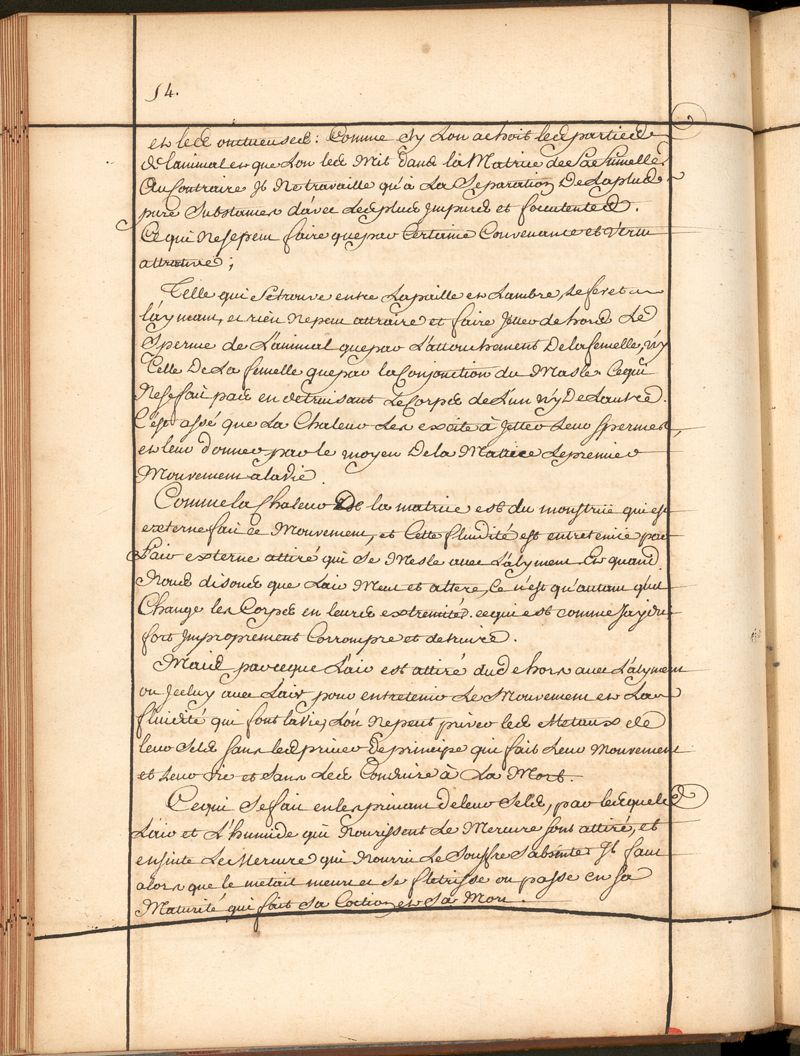 54.
et les onctueuses: Comme sy L'on achoit les parties
de l'animal et que L'on les Mit dans la Matrice de Sa femelle
Au Contraire Il Ne travaille qu'à La Separation De la plus
pure Substance d'avec Les plus Impures et foeculentes.
Ce qui Ne se peut faire que par Certaine Convenance et Vertu
attrative;
Telle qui Se trouve entre La paille et L'ambre, Le fer et
l'aymant, et rien Ne peut attraire et faire Jetter dehors Le
Sperme de L'animal que par L'attouchement De la femelle, n'y
Celle De La femelle que par la Conjonction du Masle. Ce qui
Ne se fait pas en detruisant Le Corps de L'un n'y De L'autre.
C'est assé que La Chaleur Les excite à Jetter Leur Sperme,
et leur donner par le moyen De la Matrice Le premier
Mouvement a la Vie.
Comme la Chaleur De la matrice est du monstruë qui est
externe fait ce Mouvement, et Cette fluidité est entretenüe par
l'air externe attiré qui se Mesle avec L'alyment. Et quand
Nous disons que L'air Meut et altere, Ce n'est qu'autant qu'il
Change les Corps en leurs extremités. ce qui est comme J'ay dit
fort Improprement Corrompre et detruire.
Mais parce que L'air est attiré du dehors avec L'alyment
ou Iceluy avec L'air pour entretenir Le Mouvement et La
fluidité qui font la Vie, L'on Ne peut priver les Metaux de
leur Sels sans les priver De principe qui fait Leur Mouvement
et Leur Vie et sans Les Conduire à La Mort.
Ce qui Se fait en les privant de leur Sels, par lesquels
L'air et L'humide qui Nourissent Le Mercure sont attiré, et
ensuite Le Mercure qui Nourri Le Souffre s'absente Il faut
alors que le metail meure et se fletrisse ou passe en sa
Maturité qui fait Sa Coction et Sa Mort.